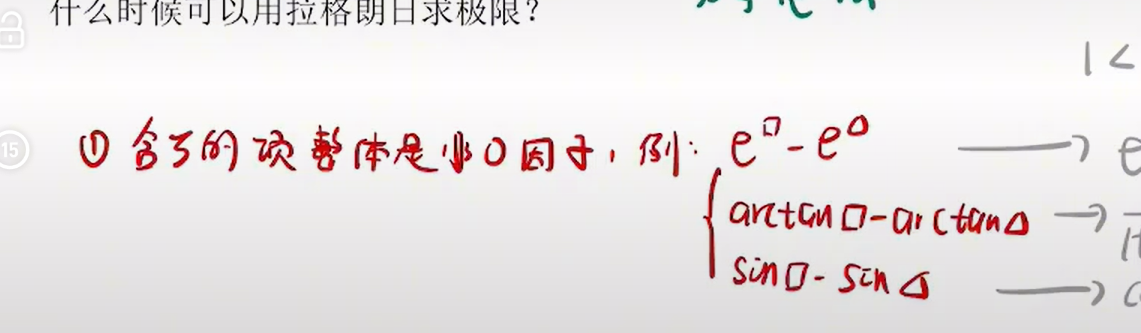 什么时候可以用拉格朗日求极限?
1 <
15
① 含ξ的项整体是非0因子,例: e^□ - e^Δ → e
arctan□-arctanΔ →
sin□-sinΔ →